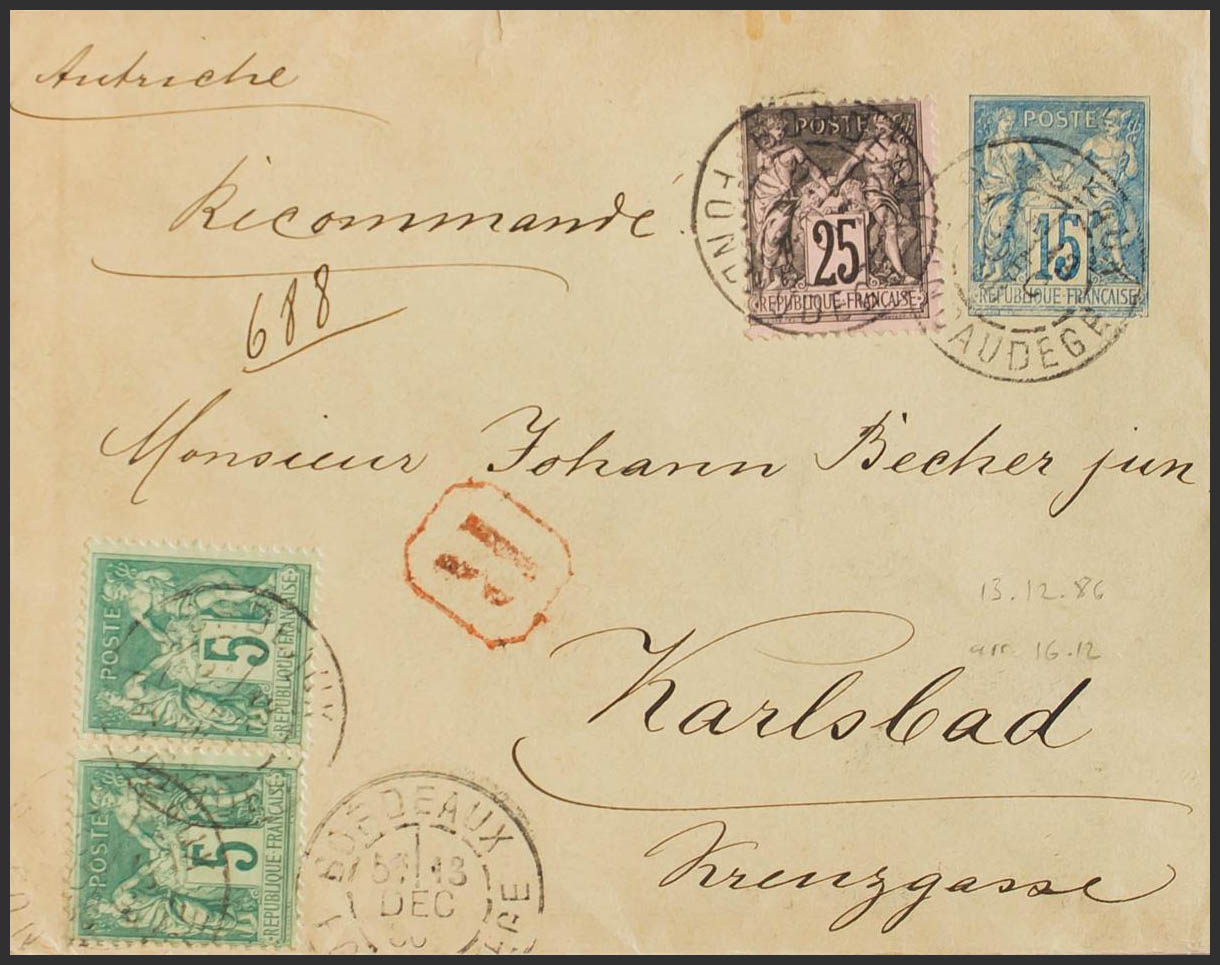 Autriche
Recommandé
688
POSTE
25
REPUBLIQUE FRANÇAISE
POSTE
15
REPUBLIQUE FRANÇAISE
CAUDEGE
Monsieur Johann Becher jun
R
13.12.86
arr. 16.12
Karlsbad
Kreuzgasse
POSTE
5
REPUBLIQUE FRANÇAISE
POSTE
5
REPUBLIQUE FRANÇAISE
BORDEAUX
13
DEC